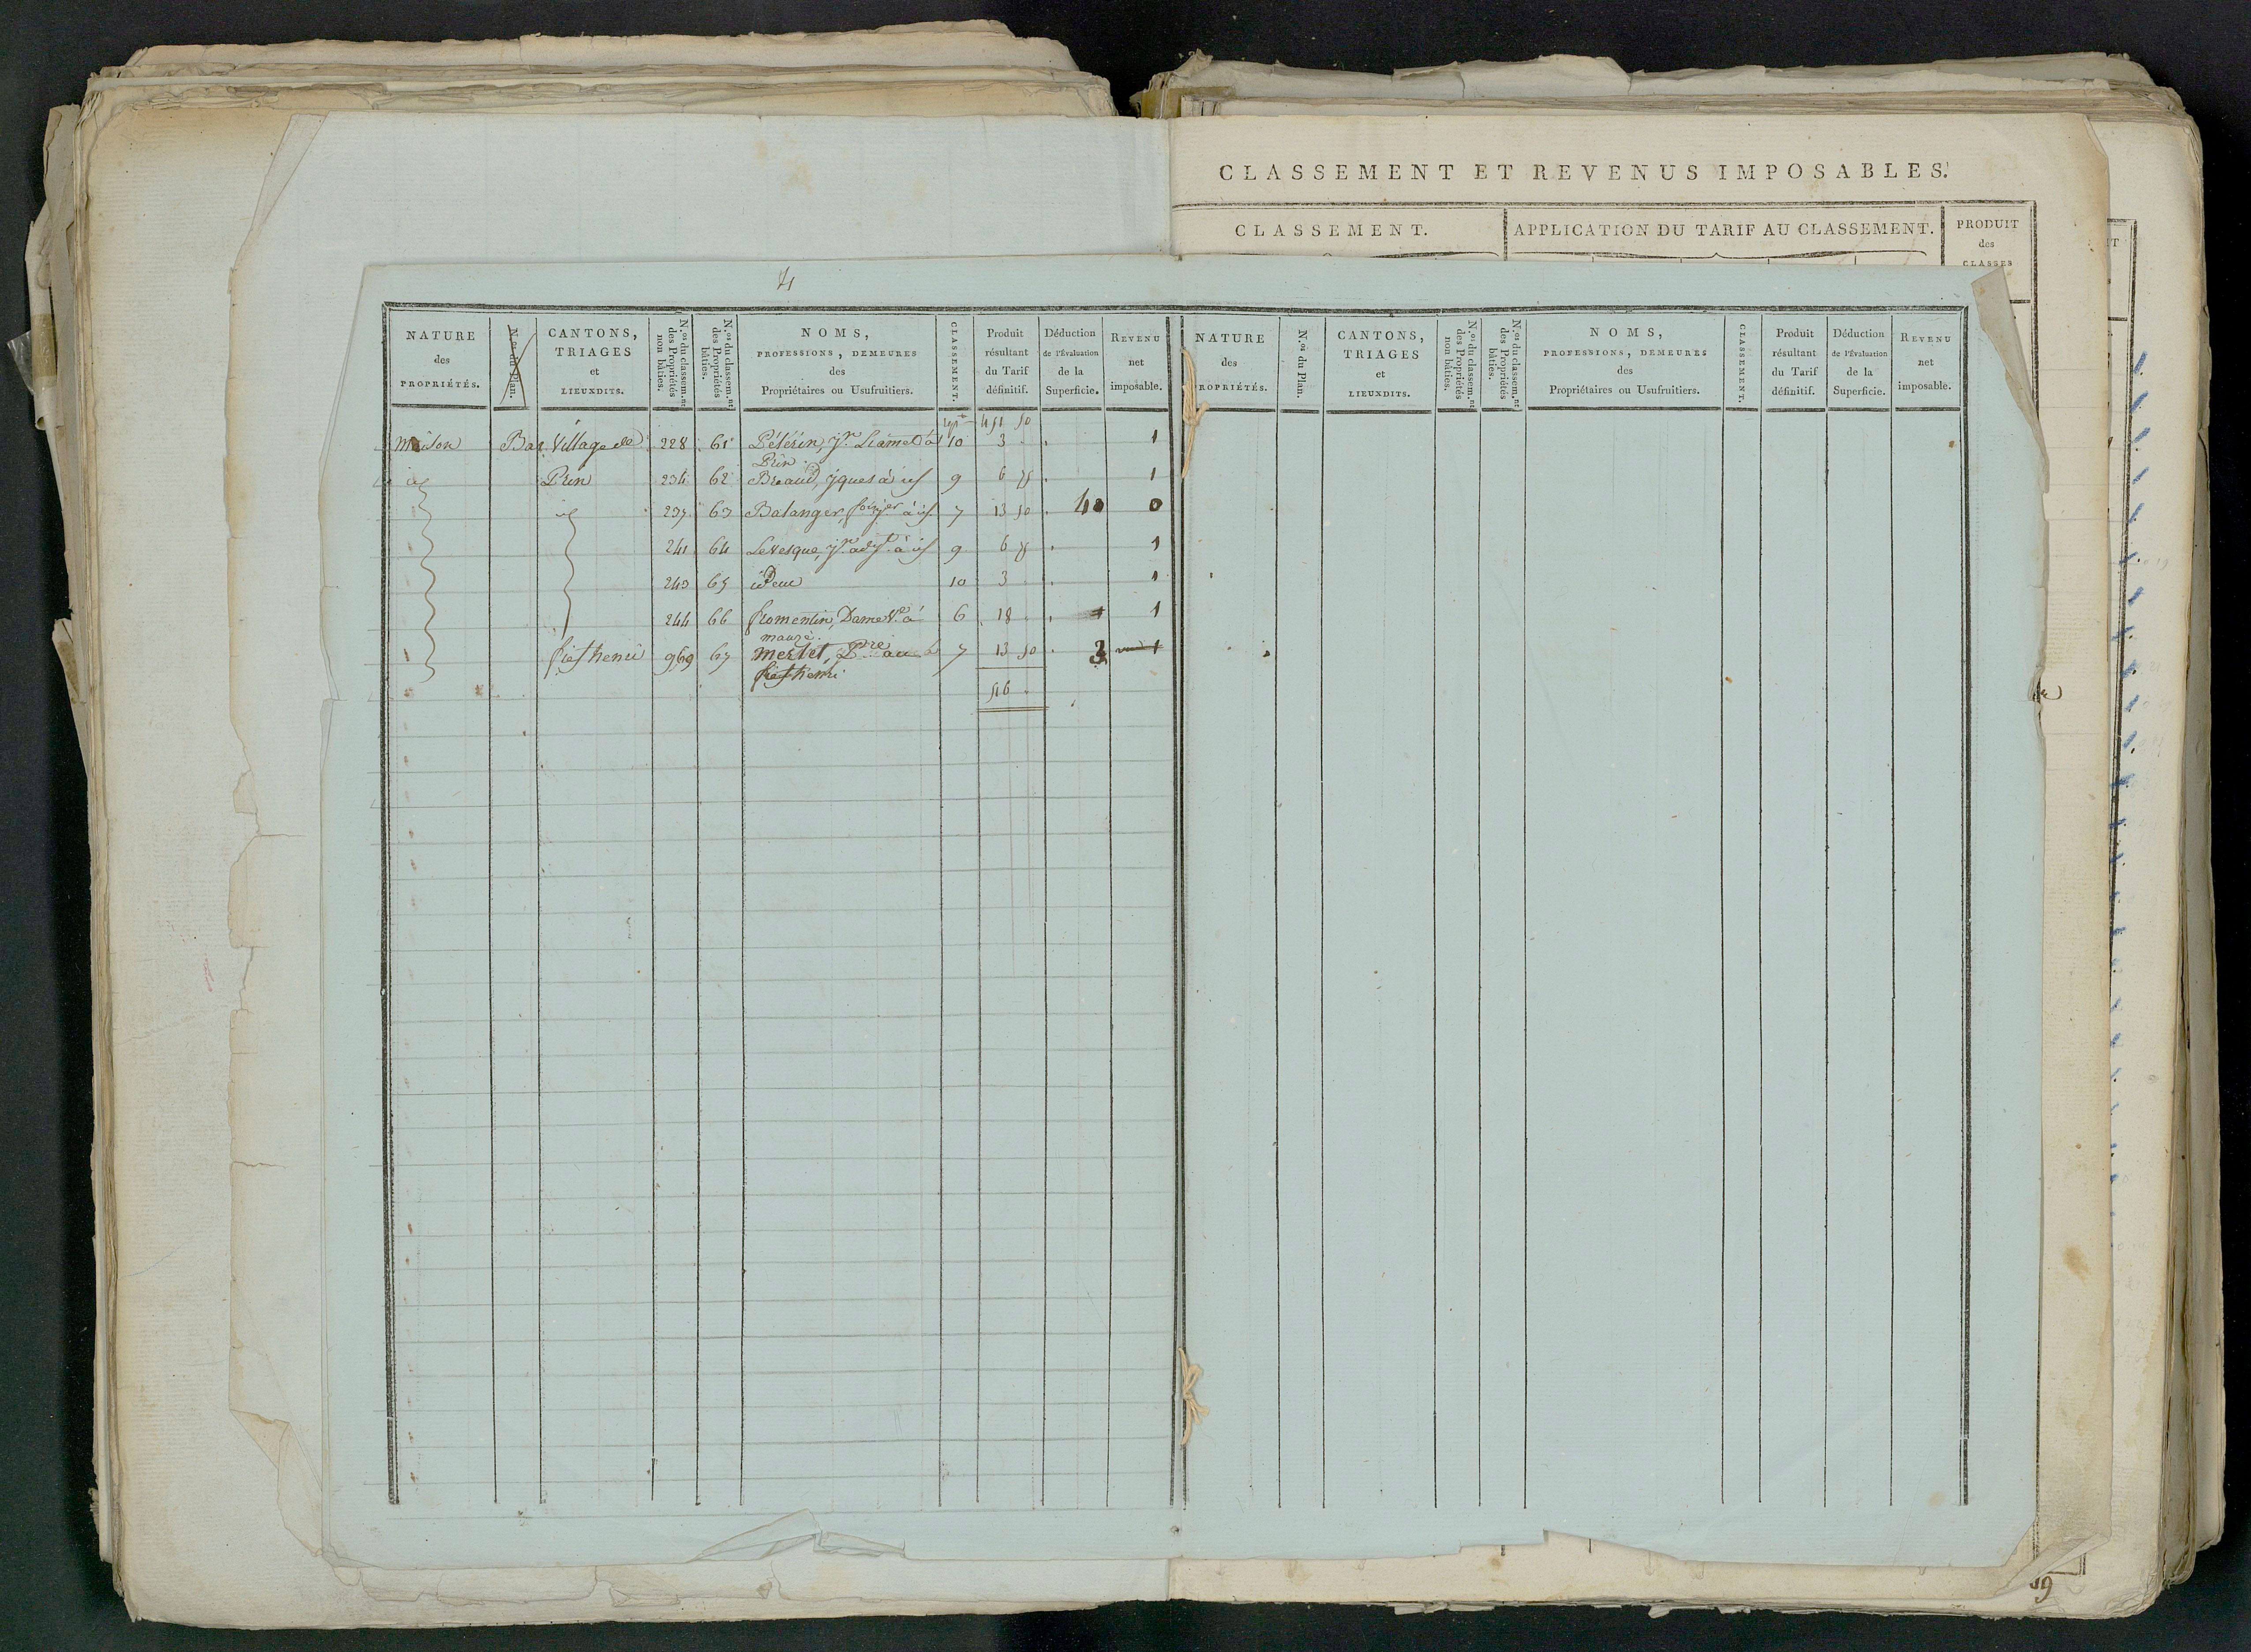 CLASSEMENT ET REVENUS IMPOSABLES.
CLASSEMENT. APPLICATION DU TARIF AU CLASSEMENT. PRODUIT
des
CLASSES
4
NATURE des PROPRIÉTÉS. N.os du Plan. CANTONS, TRIAGES et LIEUXDITS. N.os du classem.nt des Propriétés non bâties. N.os du classem.nt des Propriétés bâties. NOMS, PROFESSIONS, DEMEURES des Propriétaires ou Usufruitiers. CLASSEMENT. Produit résultant du Tarif définitif. Déduction de l'Évaluation de la Superficie. REVENU net imposable.
rept 451 50
Maison Bas Village de 228 61 Pélérin, jn. à 10 3 1
Prin
id Prin 234 62 Breaud, jques à id 9 6 75 1
id 237 63 Balanger, à id 7 13 50 40 0
241 64 Levesque, jn. à id 9 6 75 1
243 65 idem 10 3 1
244 66 fromentin, Dame Ve. à 6 18 1
mauzé.
fief henri 969 67 Merlet, Pre au 7 13 50 3 1
fief henri
516
NATURE des PROPRIÉTÉS. N.os du Plan. CANTONS, TRIAGES et LIEUXDITS. N.os du classem.nt des Propriétés non bâties. N.os du classem.nt des Propriétés bâties. NOMS, PROFESSIONS, DEMEURES des Propriétaires ou Usufruitiers. CLASSEMENT. Produit résultant du Tarif définitif. Déduction de l'Évaluation de la Superficie. REVENU net imposable.